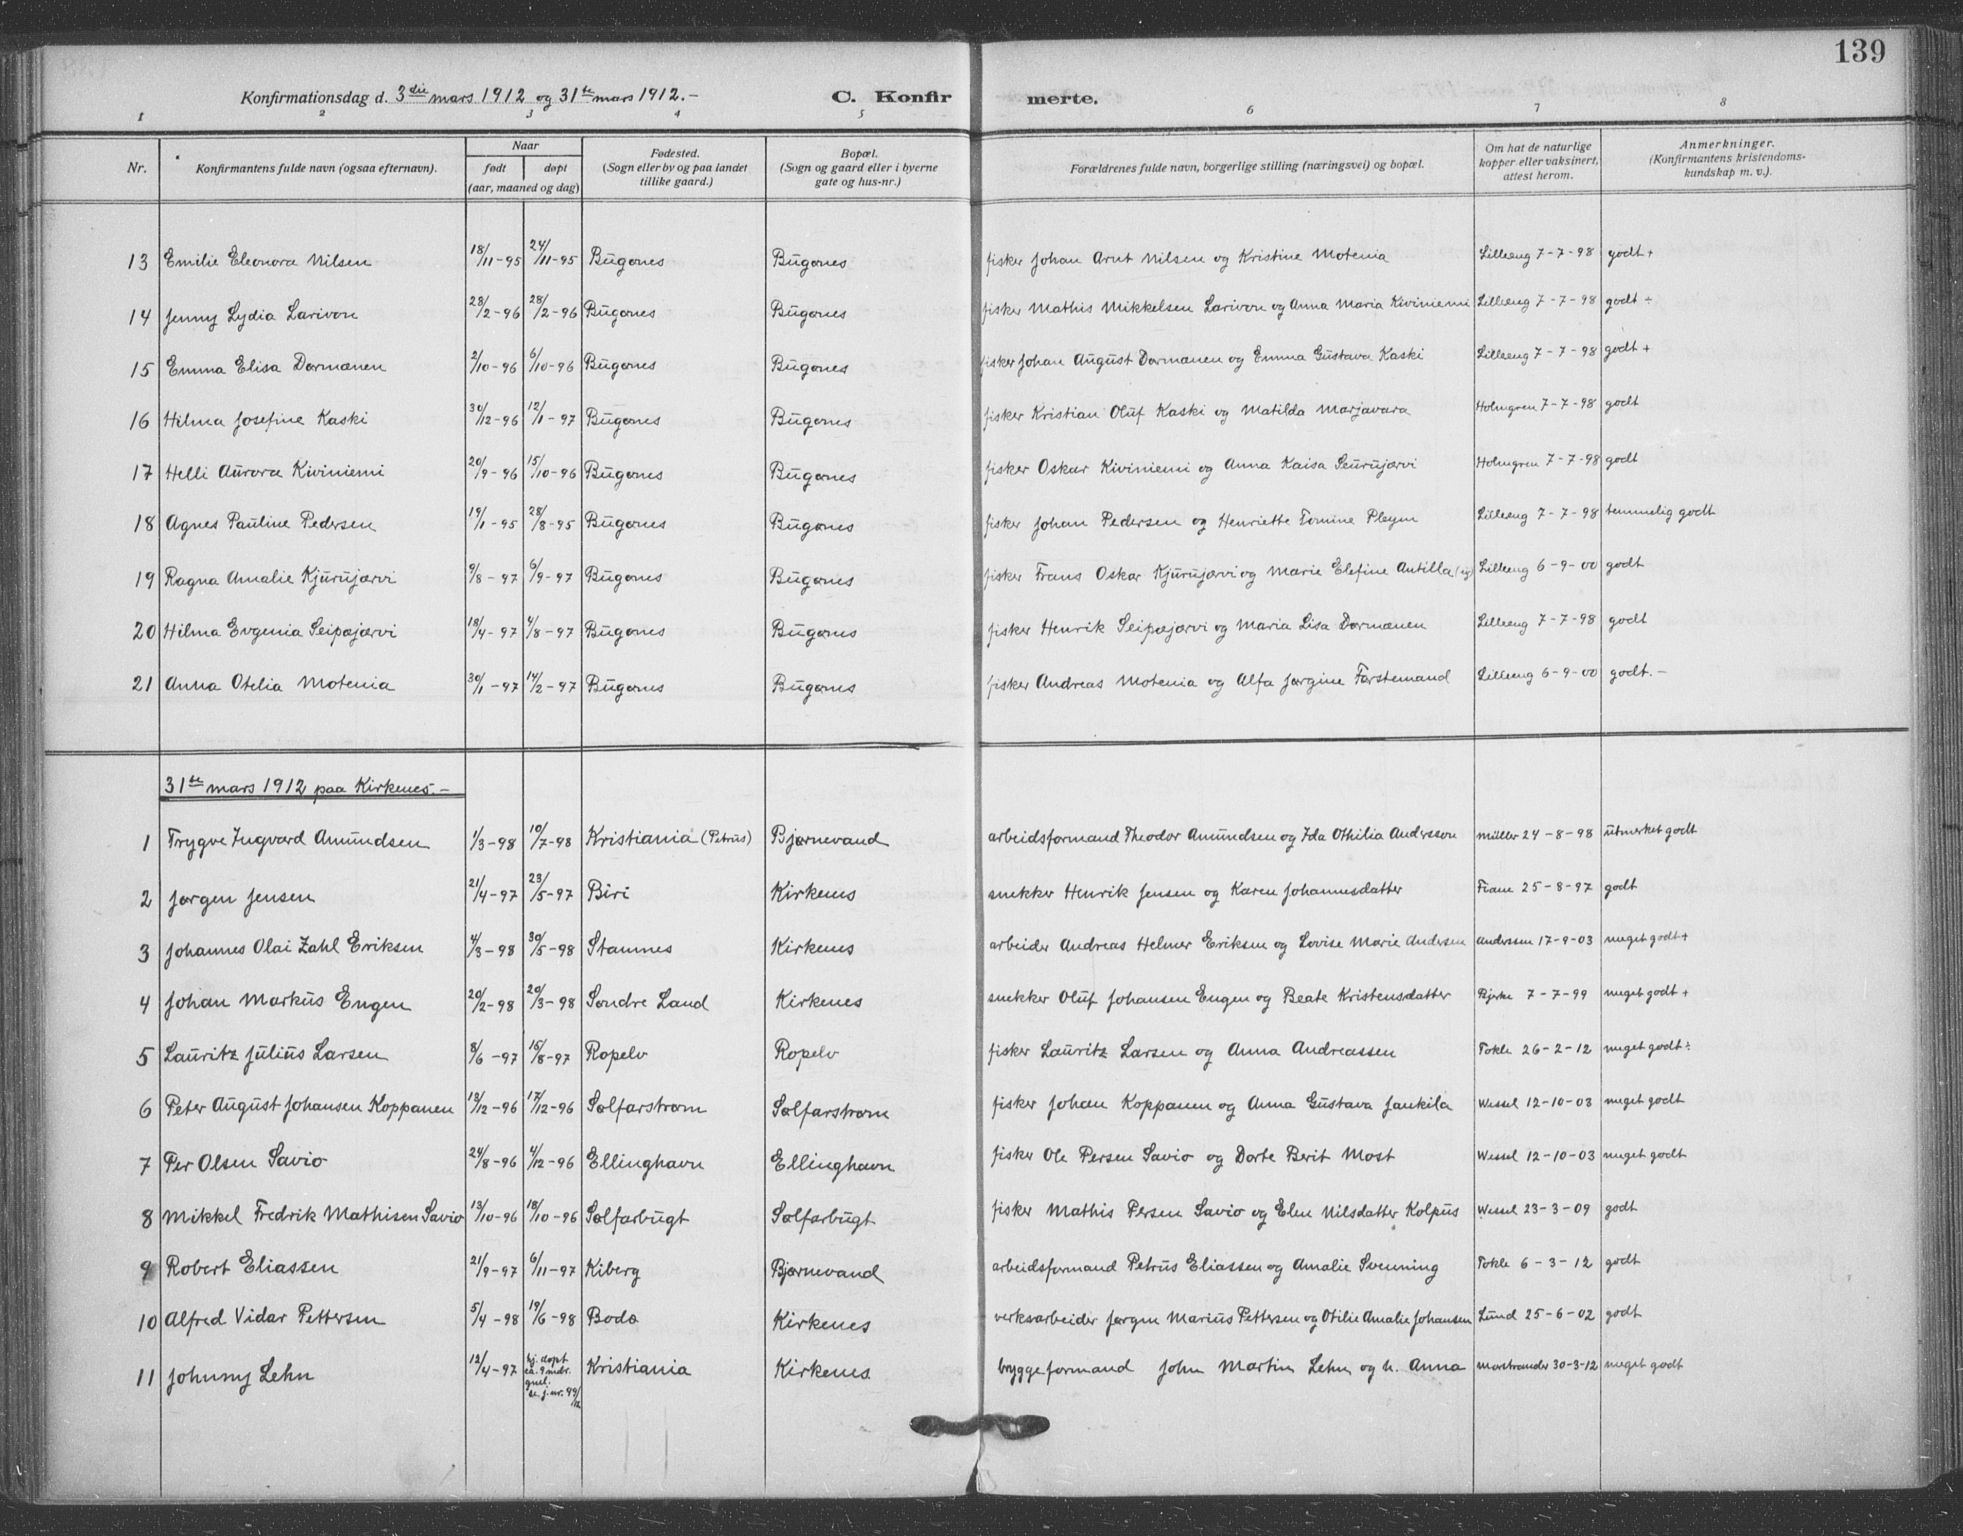 139
Konfirmationsdag d. 3die mars 1912 og 31te mars 1912.- C. Konfirmerte.
1 2 3 4 5 6 7 8
Nr. Konfirmantens fulde navn (ogsaa efternavn). Naar født døpt (aar, maaned og dag) Fødested. (Sogn eller by og paa landet tillike gaard.) Bopæl. (Sogn og gaard eller i byerne gate og hus-nr.) Forældrenes fulde navn, borgerlige stilling (næringsvei) og bopæl. Om hat de naturlige kopper eller vaksinert, attest herom. Anmerkninger. (Konfirmantens kristendoms-kundskap m. v.).
13 Emilie Eleonora Nilsen 18/11-95 24/11-95 Bugønes Bugønes fisker Johan Arnt Nilsen og Kristine Motenia Lilleeng 7-7-98 godt +
14 Jenny Lydia Larivon 23/2-96 28/2-96 Bugønes Bugønes fisker Mathis Mikkelsen Larivon og Anna Maria Kiviniemi Lilleeng 7-7-98 godt ÷
15 Emma Elisa Dørmænen 2/10-96 6/10-96 Bugønes Bugønes fisker Johan August Dørmænen og Emma Gustava Kaski Lilleeng 7-7-98 godt +
16 Hilma Josefine Kaski 30/12-96 12/1-97 Bugønes Bugønes fisker Kristian Oluf Kaski og Matilda Marjavara Holmgren 7-7-98 godt
17 Helli Aurora Kiviniemi 20/9-96 15/10-96 Bugønes Bugønes fisker Oskar Kiviniemi og Anna Kaisa Seurujærvi Holmgren 7-7-98 godt
18 Agnes Pauline Pedersen 19/1-95 28/8-95 Bugønes Bugønes fisker Johan Pedersen og Henriette Tomine Pleym Lilleeng 7-7-98 temmelig godt
19 Ragna Amalie Kjurujærvi 9/8-97 6/9-97 Bugønes Bugønes fisker Frans Oskar Kjurujærvi og Marie Elefine Antilla Lilleeng 6-9-00 godt
20 Hilma Evgenia Seipæjærvi 18/4-97 4/8-97 Bugønes Bugønes fisker Henrik Seipæjærvi og Maria Lisa Dørmænen Lilleeng 7-7-98 godt
21 Anna Otelia Motenia 30/1-97 14/2-97 Bugønes Bugønes fisker Andreas Motenia og Alfa JørgineFørstemand Lilleeng 6-9-00 godt.-
31te mars 1912 paa Kirkenes.-
1 Trygve Ingvard Amundsen 1/3-98 10/7-98 Kristiania (Petrus) Bjørnevand arbeidsformand Theodor Amundsen og Ida Othilia Andersson Müller 24-8-98 utmerket godt
2 Jørgen Jensen 21/4-97 23/5-97 Biri Kirkenes snekker Henrik Jensen og Karen Johannesdatter 25-8-97 godt
3 Johannes Olai Zahl Eriksen 4/3-98 30/5-98 Stamnes Kirkenes arbeider Andreas Helmer Eriksen og Lovise Marie Andersen Anderssen 17-9-03 meget godt +
4 Johan Markus Engen 20/2-98 20/3-98 Søndre Land Kirkenes snekker Oluf Johansen Engen og Beate Kristensdatter Bjerke 7-7-99 meget godt +
5 Lauritz Julius Larsen 8/6-97 15/8-97 Ropelv Ropelv fisker Lauritz Larsen og Anna Andreassen Tokle 26-2-12 meget godt ÷
6 Peter August Johansen Koppanen 13/12-96 17/12-96 Solfarstrøm Solfarstrøm fisker Johan Koppanen og Anna Gustava Jankila Wessel 12-10-03 meget godt
7 Per Olsen Savio 24/8-96 4/12-96 Ellinghavn Ellinghavn fisker Ole Persen Savio og Dorte Berit Most Wessel 12-10-03 meget godt
8 Mikkel Fredrik Mathisen Savio 13/10-96 18/10-96 Solfarbugt Solfarbugt fisker Mathis Persen Savio og Elen Nilsdatter Kolpus Wessel 23-3-09 godt
9 Robert Eliassen 21/9-97 6/11-97 Kiberg Bjørnevand arbeidsformand Petrus Eliassen og Amalie Svenning Tokle 6-3-12 godt
10 Alfred Vidar Pettersen 5/4-98 19/6-98 Bodø Kirkenes verksarbeider Jørgen Marius Pettersen og Otilie Amalie Johansen Lund 25-6-02 godt
11 Johnny Lehn 12/4-97 hj. døpt ca. 9 mdr. gml. se j.nr. 99/12 Kristiania Kirkenes bryggeformand John Martin Lehn og h. Anna Morstrander 30-3-12 meget godt